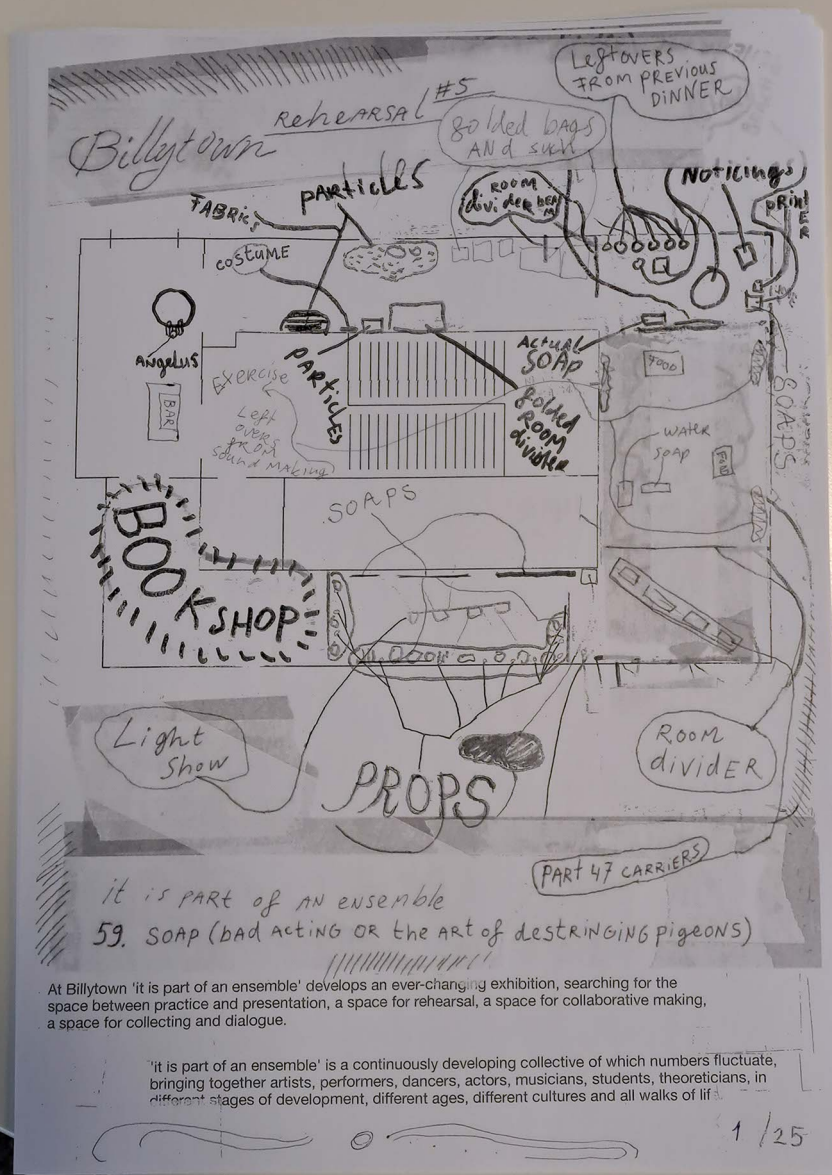 Leftovers
from previous
dinner
Rehearsal #5
Billytown
golded bags
and such
particles
Noticings
room
divider
printer
fabrics
costume
Angelus
BAR
particles
Actual
SOAP
Food
Exercise
Left
overs
from
sound making
golded
room
divider
water
soap
SOAPS
SOAPS
BOOKSHOP
Light
Show
PROPS
Room
divider
PART 47 CARRIERS
it is part of an ensemble
59. SOAP (bad acting or the art of destringing pigeons)
At Billytown 'it is part of an ensemble' develops an ever-changing exhibition, searching for the
space between practice and presentation, a space for rehearsal, a space for collaborative making,
a space for collecting and dialogue.
'it is part of an ensemble' is a continuously developing collective of which numbers fluctuate,
bringing together artists, performers, dancers, actors, musicians, students, theoreticians, in
different stages of development, different ages, different cultures and all walks of lif
1 /25